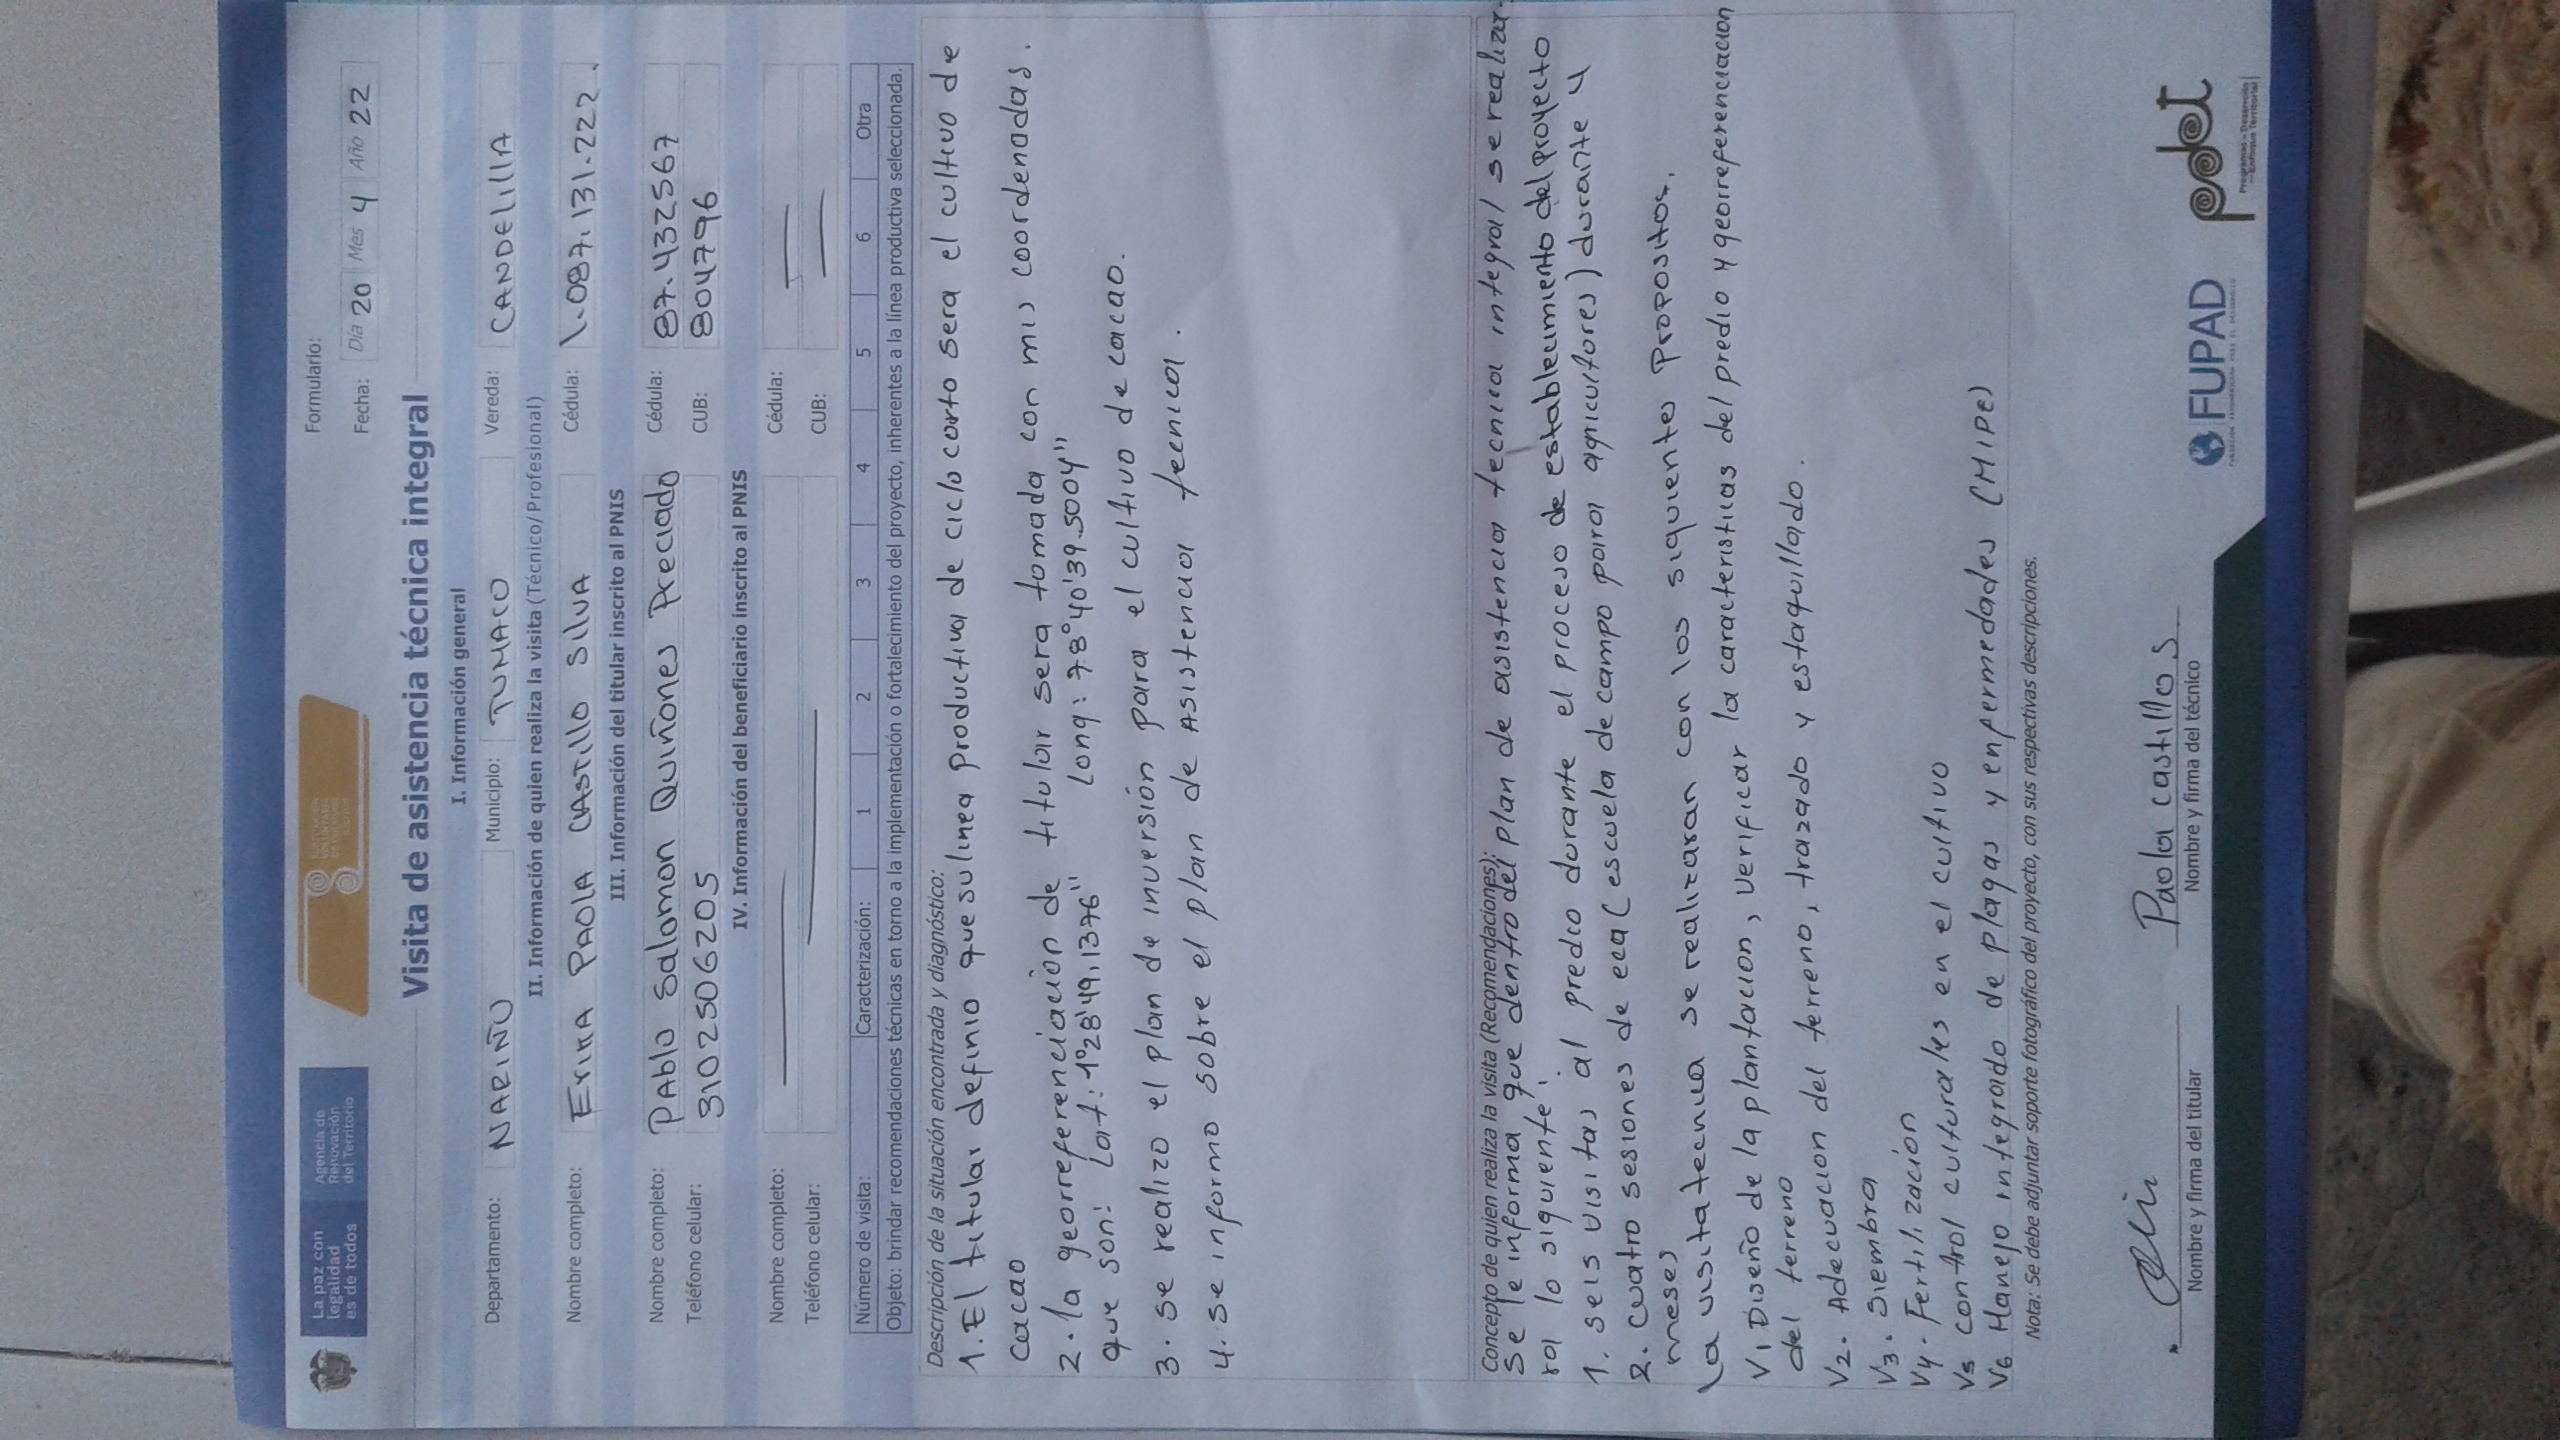 La paz con
legalidad
es de todos
Agencia de
Renovación
del Territorio
Formulario:
Fecha: Día 20 Mes 4 Año 22
Visita de asistencia técnica integral
I. Información general
Departamento: NARIÑO Municipio: TUMACO Vereda: CANDELILLA
II. Información de quien realiza la visita (Técnico/Profesional)
Nombre completo: ERIKA PAOLA CASTILLO SILVA Cédula: 1.087.131.222.
III. Información del titular inscrito al PNIS
Nombre completo: PAblo Salomon Quiñones Preciado Cédula: 87.432567
Teléfono celular: 3102506205 CUB: 804796
IV. Información del beneficiario inscrito al PNIS
Nombre completo: Cédula:
Teléfono celular: CUB:
Número de visita: Caracterización: 1 2 3 4 5 6 Otra
Objeto: brindar recomendaciones técnicas en torno a la implementación o fortalecimiento del proyecto, inherentes a la línea productiva seleccionada.
Descripción de la situación encontrada y diagnóstico:
1. El titular definio que su linea productiva de ciclo corto sera el cultivo de
cacao
2. la georreferenciacion de titular sera tomada con mis coordenadas.
que son: Lat: 1°28'49,1376" Long: 78°40'39.5004"
3. se realizo el plan de inversión para el cultivo de cacao.
4. se informo sobre el plan de Asistencia tecnica.
Concepto de quien realiza la visita (Recomendaciones):
Se le informa que dentro del plan de asistencia tecnica integral se realiza-
ra lo siguiente:
1. seis visitas al predio durante el proceso de establecimiento del proyecto
2. cuatro sesiones de eca (escuela de campo para agricultores) durante 4
meses
La visita tecnica se realizaran con los siguiente Propositos.
V1 Diseño de la plantacion, verificar la caracteristicas del predio y georreferenciacion
del terreno
V2. Adecuacion del terreno, trazado y estaquillado.
V3. Siembra
V4. Fertilización
V5 control culturales en el cultivo
V6 Manejo integrado de plagas y enfermedades (MIPE)
Nota: Se debe adjuntar soporte fotográfico del proyecto, con sus respectivas descripciones.
Paola castillo S
Nombre y firma del titular Nombre y firma del técnico
FUPAD
pdet
Programas de Desarrollo
con Enfoque Territorial